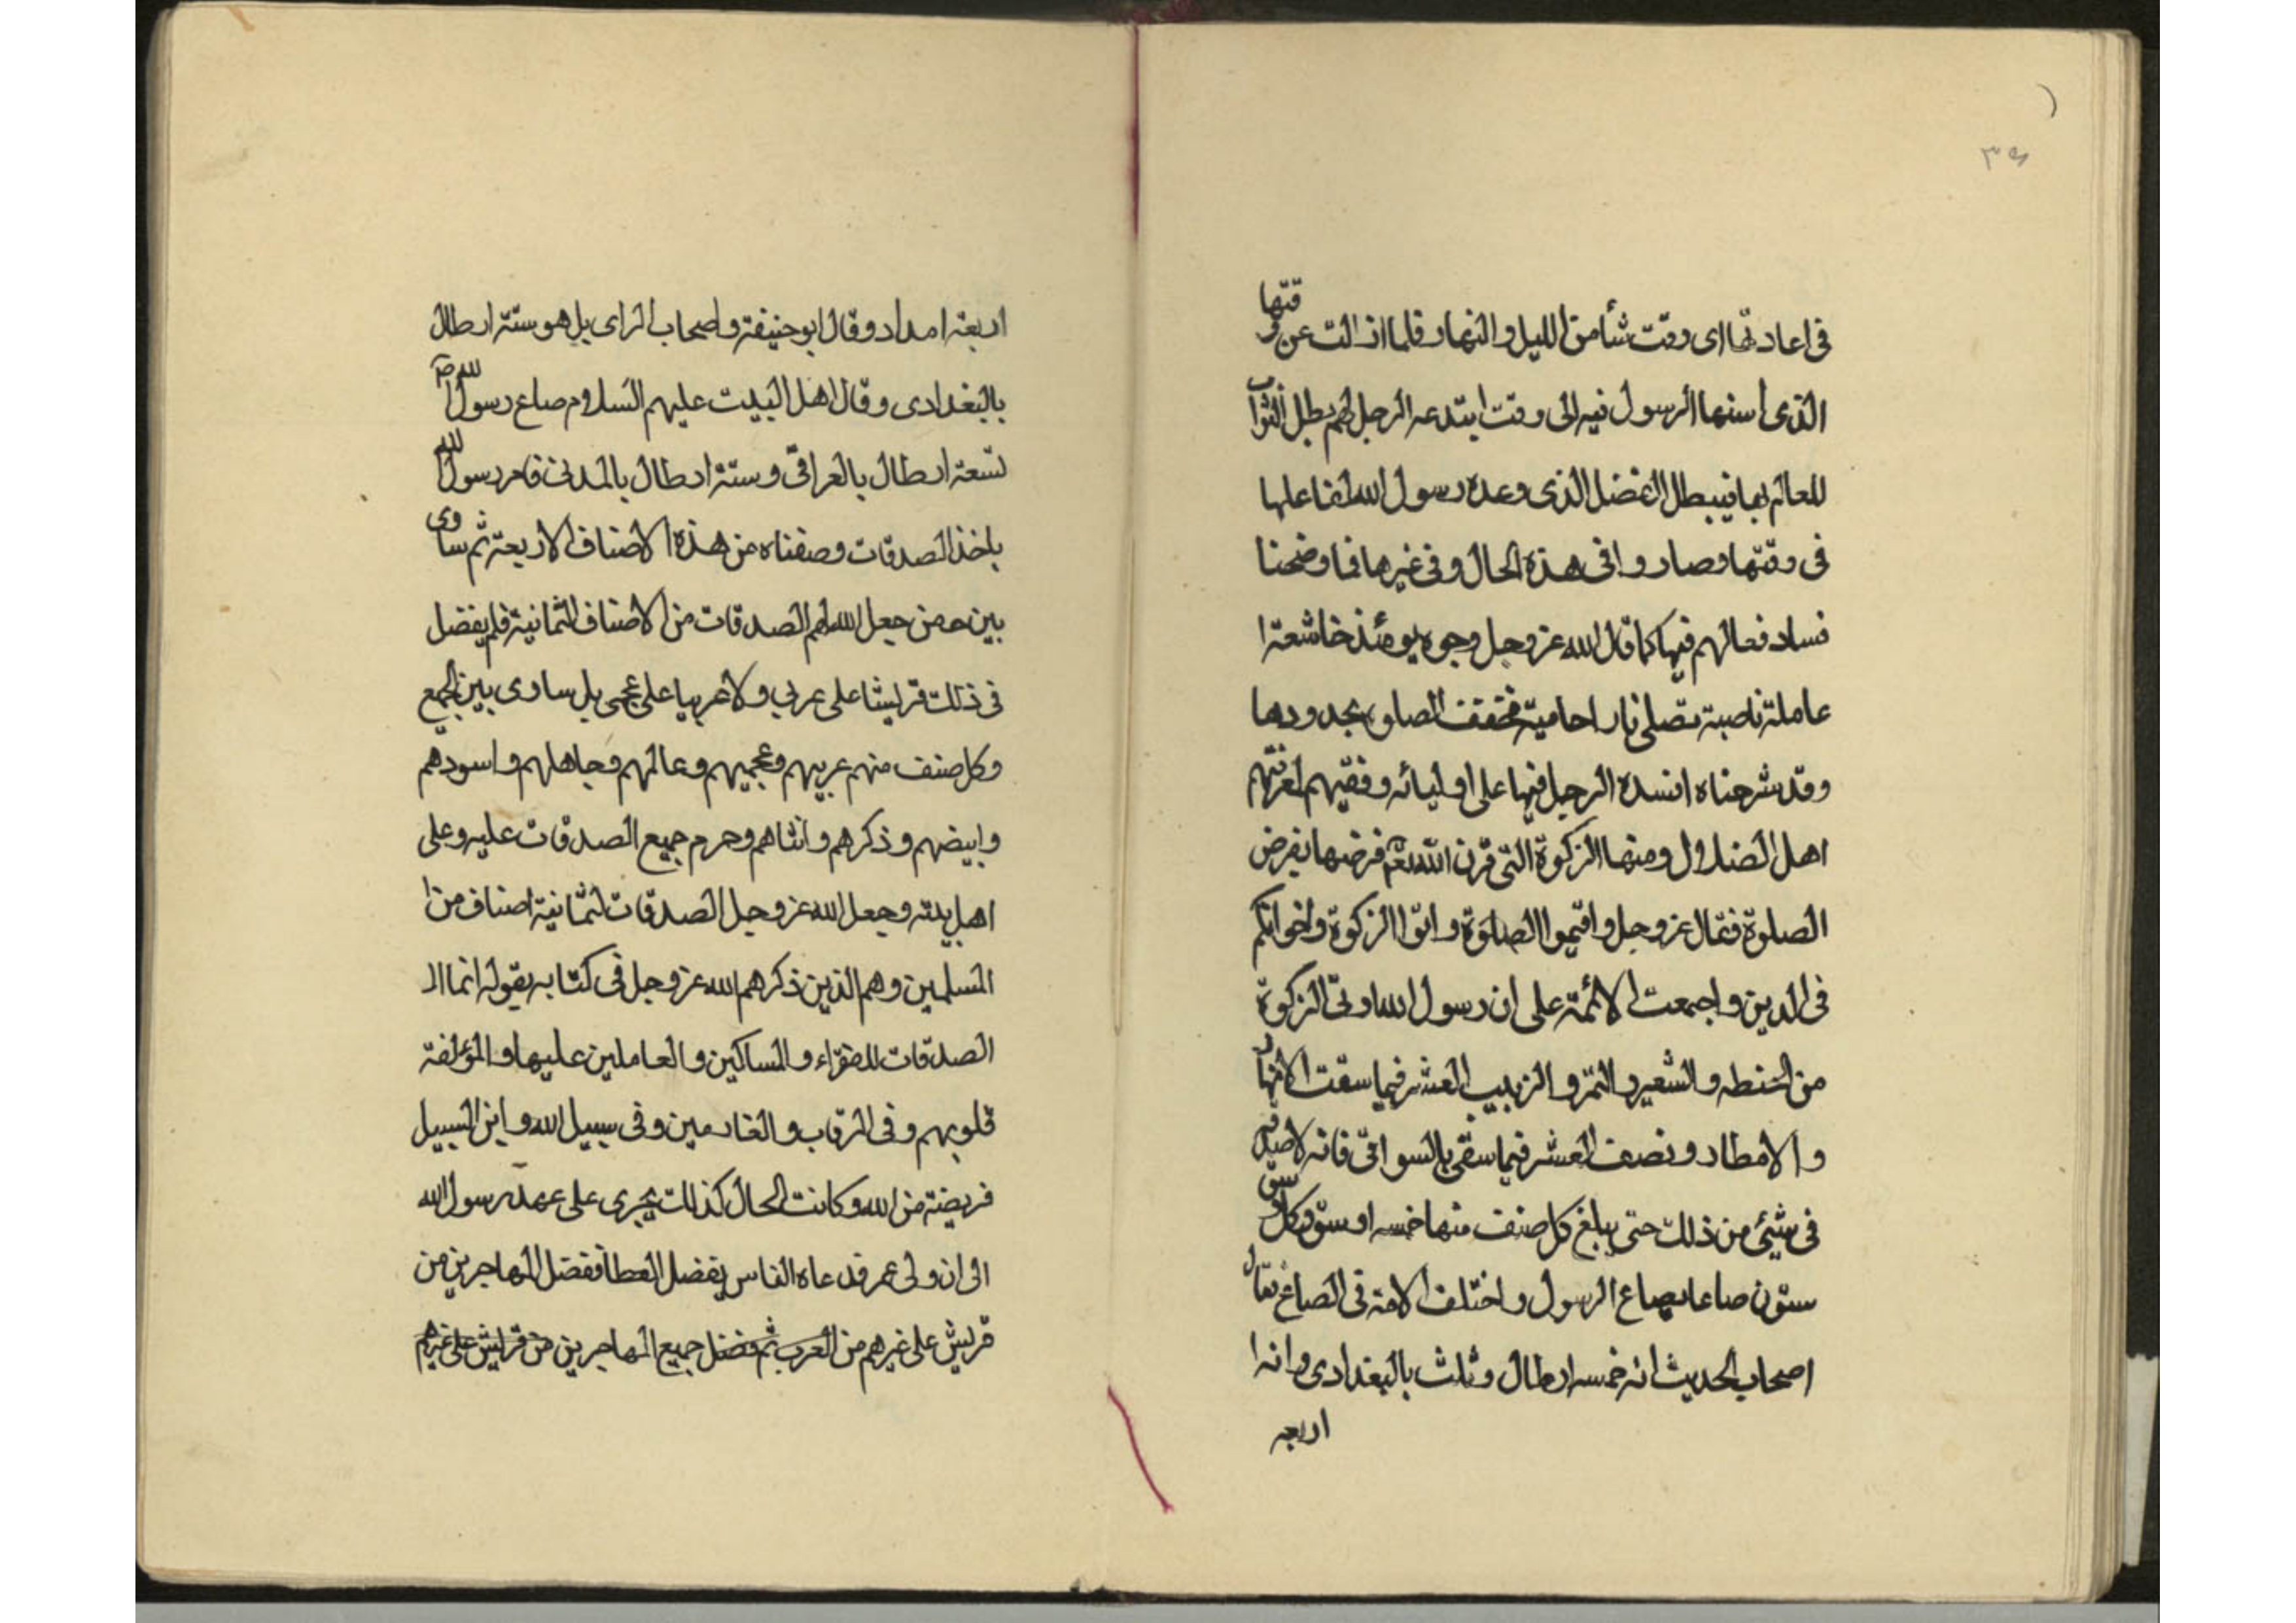 ٣٥
فى اعادتها اى وقت شأ من الليل والنهار فلما ازالت عن وقتها
الذى اسنها الرسول فيه الى وقت ابتدعه الرجل لهم بطل الثواب
للعالم بها فيبطل الفضل الذى وعده رسول الله لفاعلها
فى وقتها وصاروا فى هذه الحال وفى غيرها فما وضحنا
فساد فعالهم فيها كما قال الله عز وجل وجوه يومئذ خاشعة ا
عاملة ناصبة تصلى نارا حامية الصلوة بحدودها
وقد شرحناه افسده الرجل فيها على اوليائه وفقيهم
اهل الضلال ومنها الزكوة التى قرن الله فرضها بفرض
الصلوة فقال عز وجل واقيموا الصلوة واتوا الزكوة واخوانكم
فى الدين واجمعت الائمة على ان رسول الله ولى الزكوة
من الحنطه والشعير والتمر والزبيب العشر فيما سقت الانهار
والامطار ونصف العشر فيما سقى بالسواقى فانه لا صدقه
فى شئ من ذلك حتى يبلغ كل صنف منها خمسه اوسق وكل وسق
ستون صاعا بصاع الرسول واختلف الامة فى الصاع فقال
اصحاب الحديث انه خمسه ارطال وثلث بالبغدادى وانه ا
اربعه
اربعة امداد وقال ابو حنيفة واصحاب الراى بل هو ستة ارطال
بالبغدادى وقال اهل البيت عليهم السلام صاع رسول الله ص
تسعة ارطال بالعراقى وستة ارطال بالمدنى فامر رسول الله
باخذ الصدقات وصفناه من هذه الاصناف الاربعة ثم ساوى
بين من جعل الله لهم الصدقات من الاصناف الثمانية فلم يفضل
فى ذلك قرليشا على عربي ولا عربيا على عجمى بل ساوى بين الجمع
وكل صنف منهم عربيهم وعجميهم وعالمهم وجاهلهم واسودهم
وابيضهم وذكرهم وانثاهم وحرم جميع الصدقات عليه وعلى
اهل بيته وجعل الله عز وجل الصدقات لثمانية اصناف من ا
المسلمين وهم الذين ذكرهم الله عز وجل فى كتابه بقوله انما ال
الصدقات للفقراء والمساكين والعاملين عليها والمؤلفة
قلوبهم وفى الرقاب والغارمين وفى سبيل الله وابن السبيل
فريضة من الله وكانت الحال كذلك يجرى على عهد رسول الله
الى ان ولى عمر فدعاه الناس بفضل العطا ففضل المهاجرين من
قريش على غيرهم من العرب ثم فضل جميع المهاجرين من قرليش على غيرهم